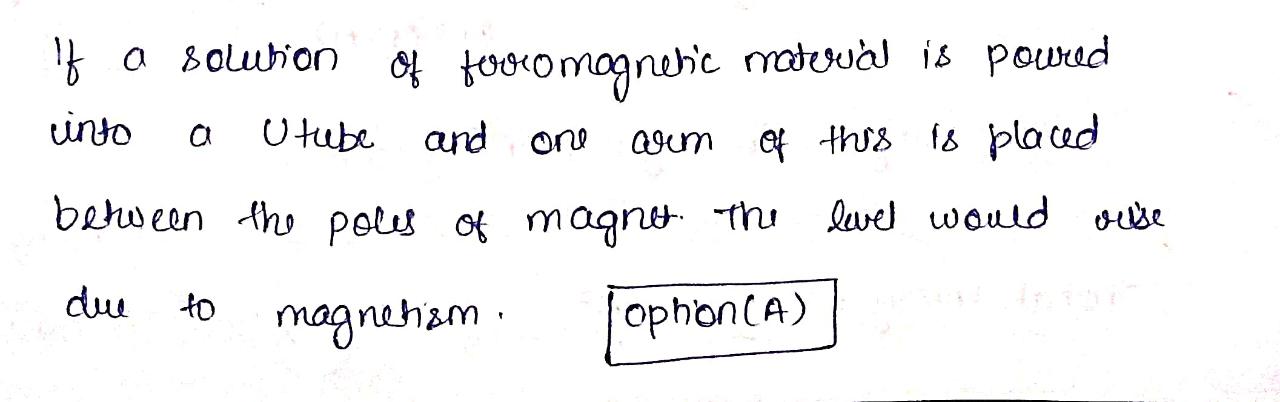 If a solution of ferromagnetic material is poured
into a U tube and one arm of this is placed
between the poles of magnet. The level would rise
due to magnetism. option(A)